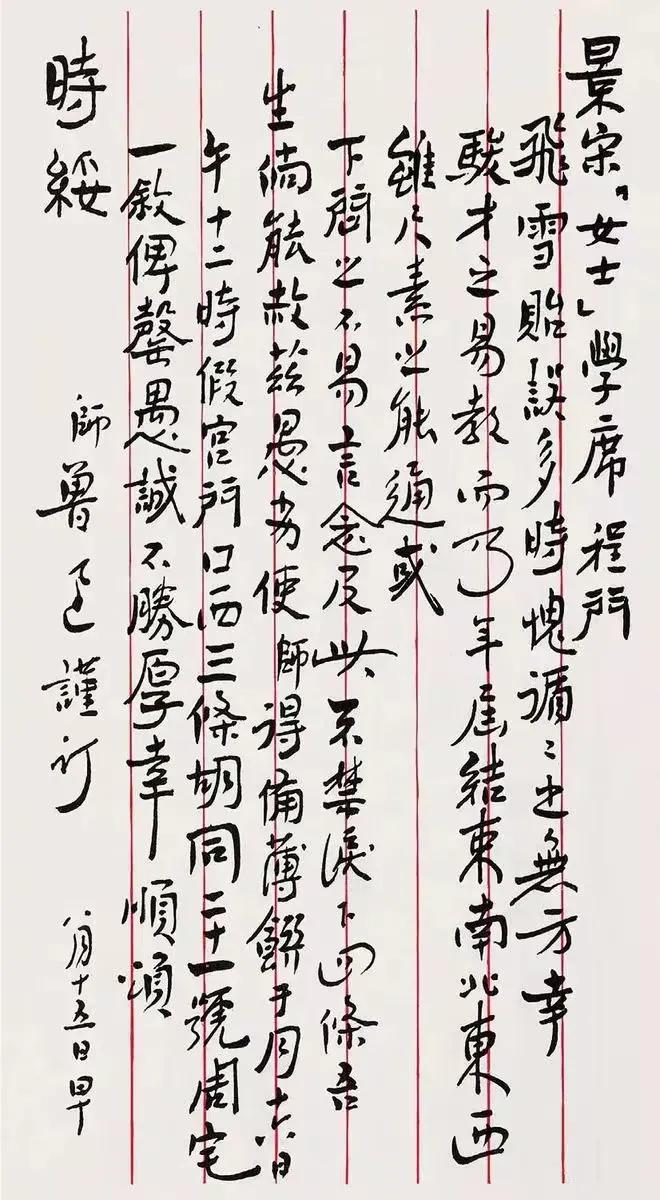 景宋「女士」學席程門
飛雪貽誤多時愧循〻之無方幸
駿才之易教而乃年屆結束南北東西
雖尺素之能通或
下問之不易言念及此不禁淚下四條吾
生倘能赦茲愚劣使師得備薄饌于月十六日
午十二時假宮門口西三條胡同二十一號周宅
一敘俾罄愚誠不勝厚幸順頌
時綏
師魯迅謹訂 八月十五日早